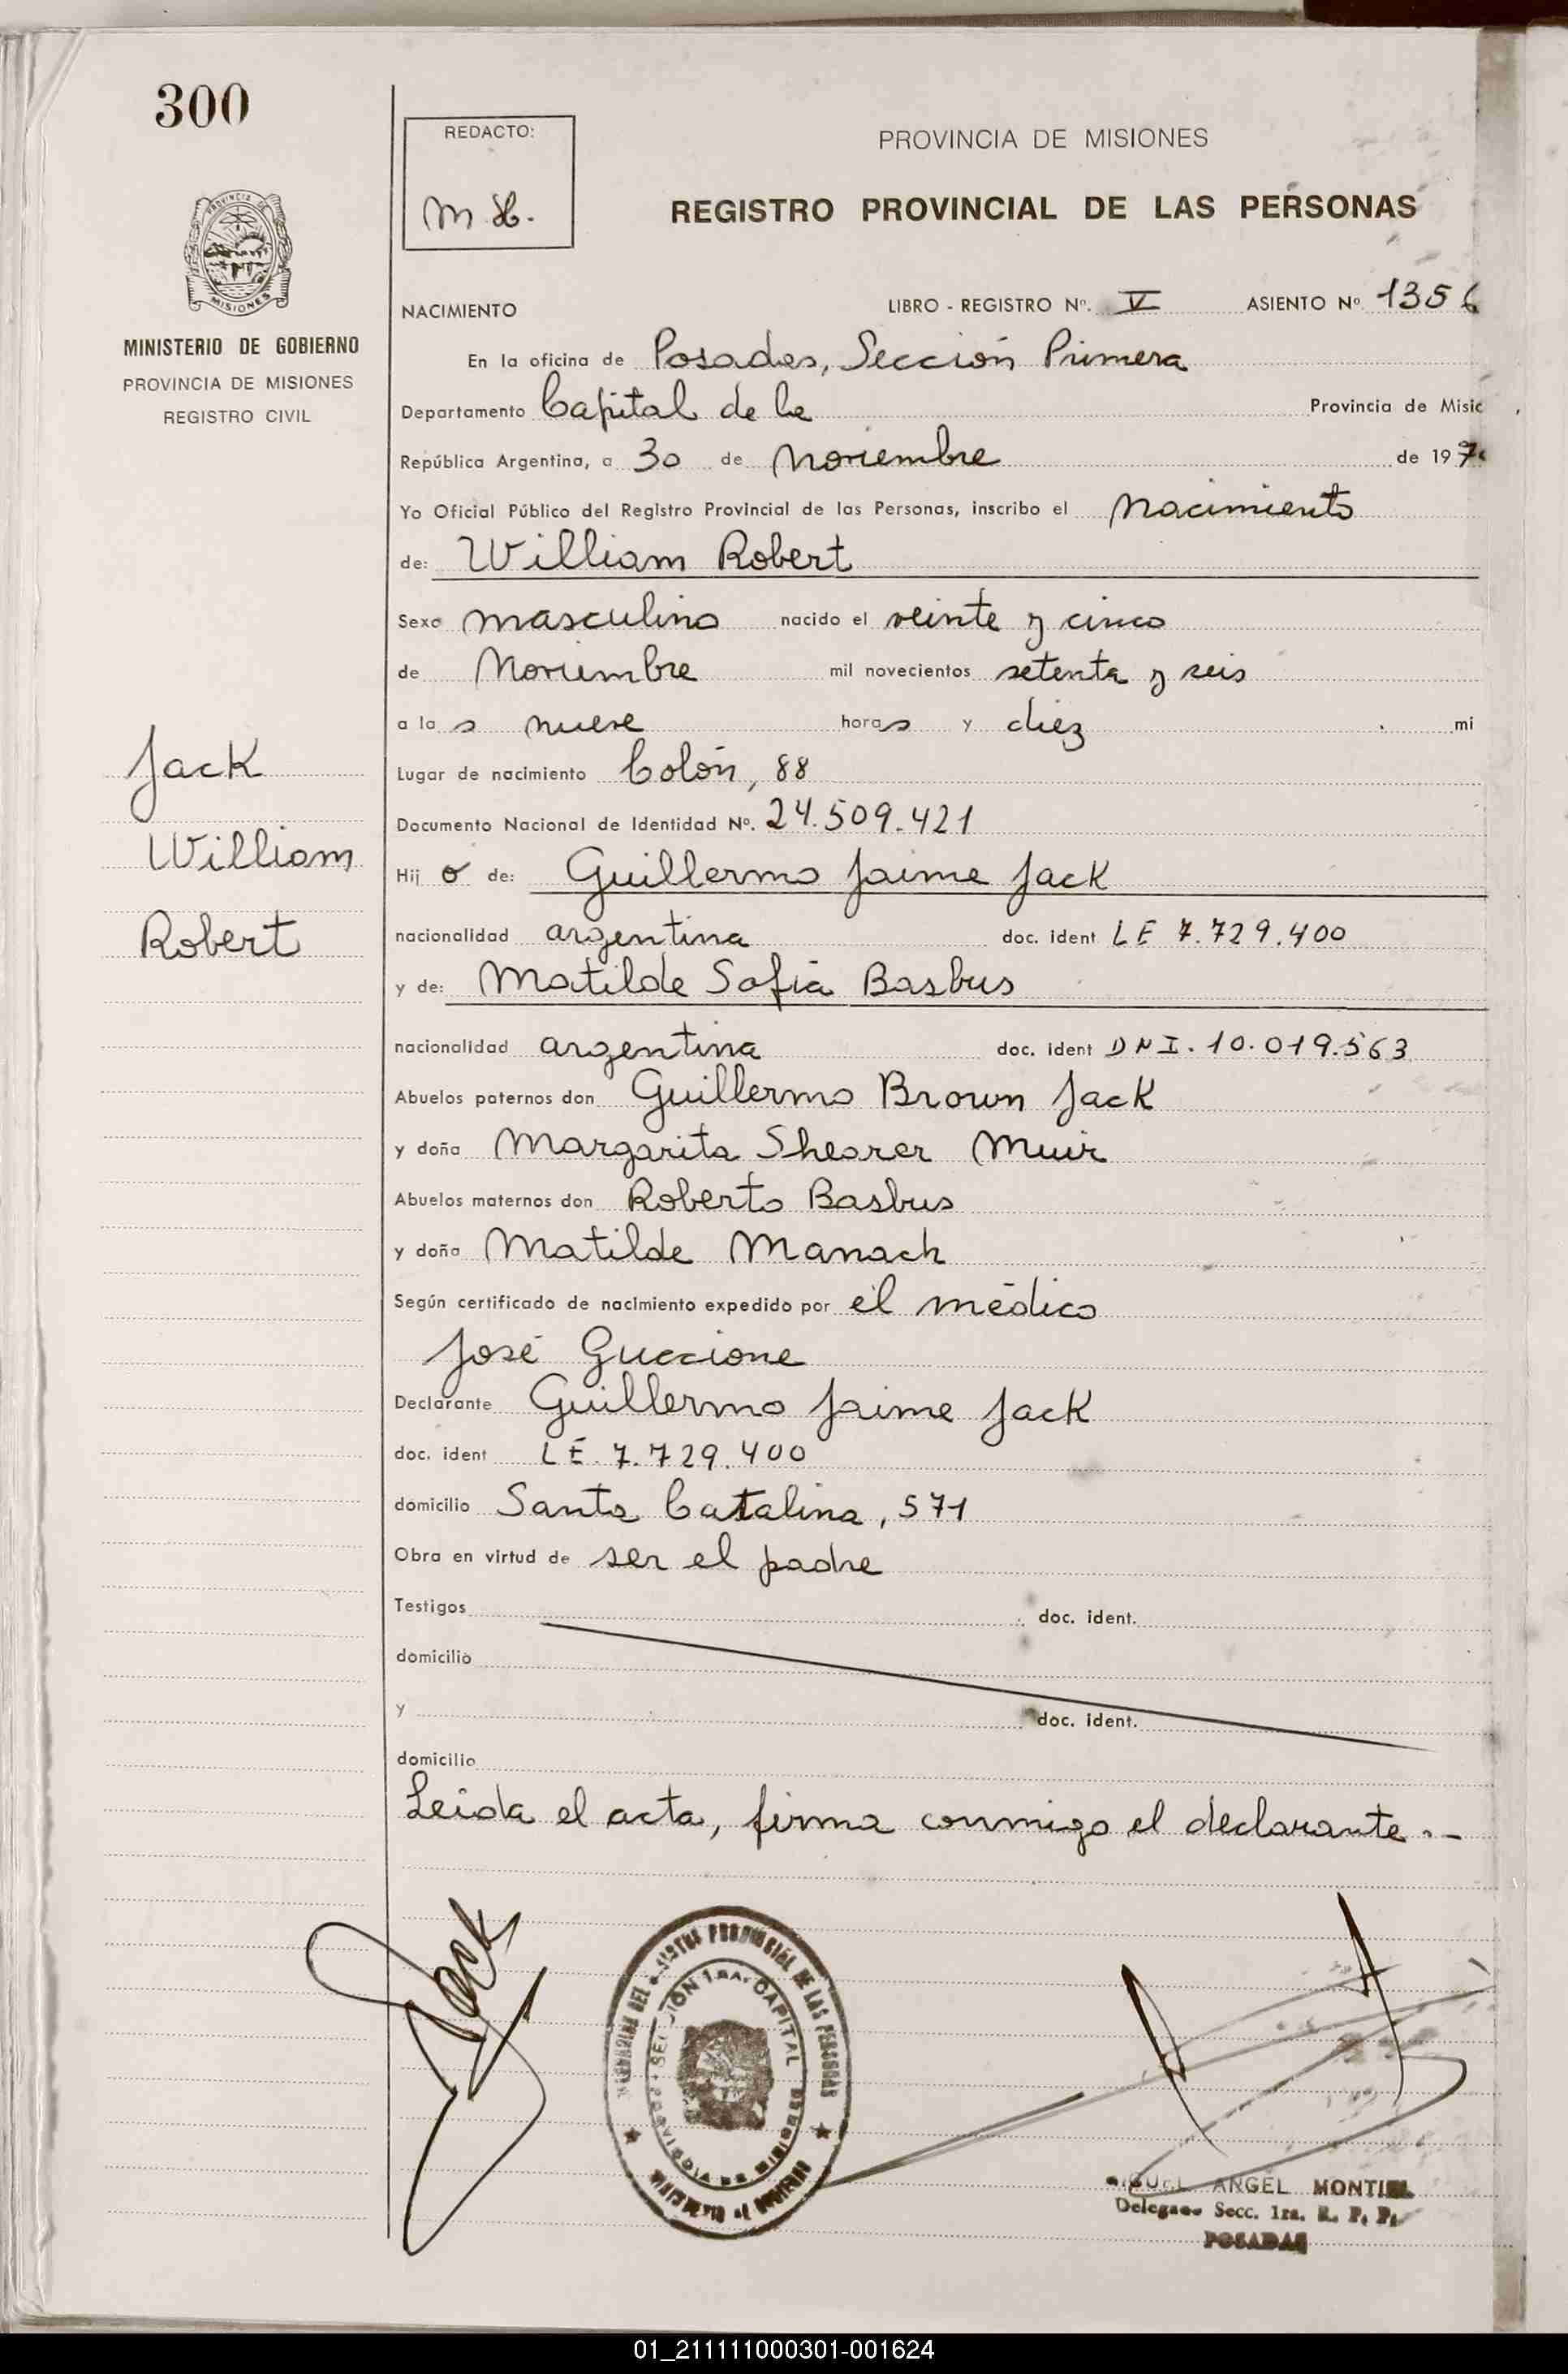 300
REDACTO:
M.H.
PROVINCIA DE MISIONES
REGISTRO PROVINCIAL DE LAS PERSONAS
PROVINCIA DE
MISIONES
MINISTERIO DE GOBIERNO
PROVINCIA DE MISIONES
REGISTRO CIVIL
NACIMIENTO LIBRO - REGISTRO Nº. V ASIENTO Nº 1356
En la oficina de Posadas, Sección Primera
Departamento Capital de la Provincia de Misic
República Argentina, a 30 de Noviembre de 197
Yo Oficial Público del Registro Provincial de las Personas, inscribo el Nacimiento
de: William Robert
Sexo masculino nacido el veinte y cinco
de Noviembre mil novecientos setenta y seis
a la s nueve horas y diez mi
Lugar de nacimiento Colón, 88
Documento Nacional de Identidad Nº. 24.509.421
Hij o de: Guillermo Jaime Jack
nacionalidad argentina doc. ident LE 7.729.400
y de: Matilde Sofia Basbus
nacionalidad argentina doc. ident DNI. 10.019.563
Abuelos paternos don Guillermo Brown Jack
y doña Margarita Shearer Muir
Abuelos maternos don Roberto Basbus
y doña Matilde Manach
Según certificado de nacimiento expedido por el médico
José Guccione
Declarante Guillermo Jaime Jack
doc. ident LE. 7.729.400
domicilio Santa Catalina, 571
Obra en virtud de ser el padre
Testigos doc. ident.
domicilio
y doc. ident.
domicilio
Leida el acta, firma conmigo el declarante.-
Jack
William
Robert
Jack
PROVINCIAL DE LAS PERSONAS
1RA. CAPITAL
ANGEL MONTIEL
Delegado Secc. 1ra. R. P. P.
POSADAS
01_211111000301-001624